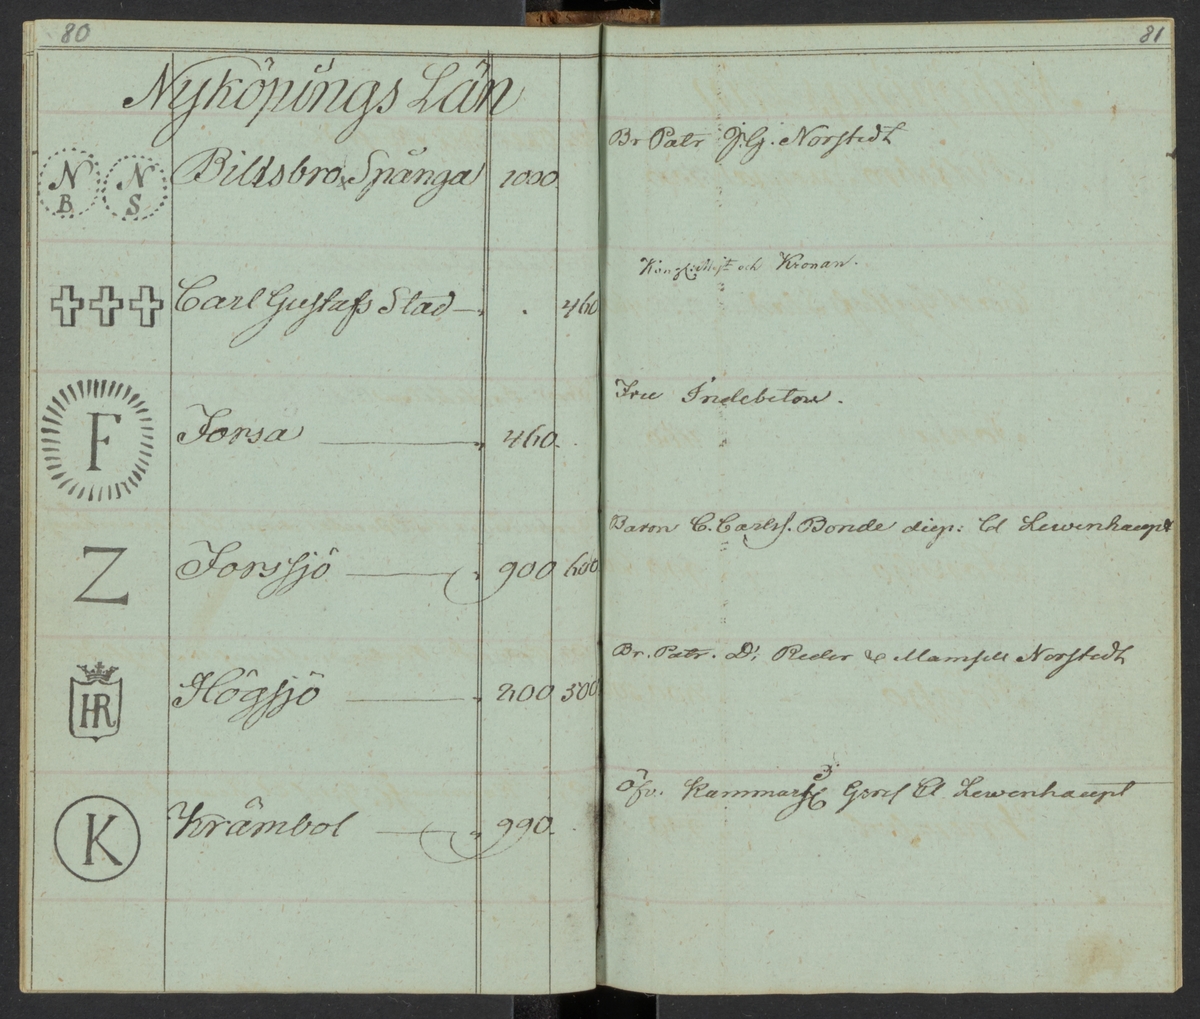 80
81
Nyköpings Län
N B N S Bilsbro & Spånga 1000. Br Patr J. G. Norstedt
Carl Gustafs Stad . 460 Kongl. Majt och Kronan.
F Forsa 460. Fru Indebetou.
Z Forssjö 900 600 Baron C. Carlss. Bonde disp: Cl Lewenhaupt
HR Högsjö 200 500 Br. Patr. D. Reder & Mamsell Norstedt
K Kråmbol 990. Öfv. Kammarh Gref Cl Lewenhaupt